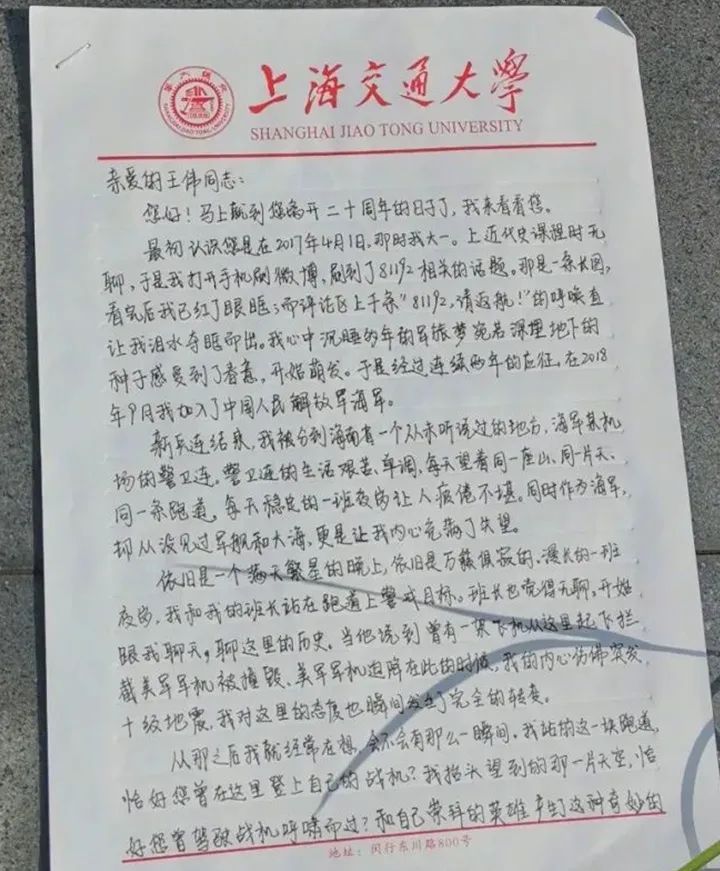 上海交通大学
SHANGHAI JIAO TONG UNIVERSITY
SHANGHAI JIAO TONG UNIVERSITY
亲爱的王伟同志:
您好!马上就到您离开二十周年的日子了,我来看看您。
最初认识您是在2017年4月1日,那时我大一。上近代史课程时无
聊,于是我打开手机刷微博,刷到了81192相关的话题。那是一条长图,
看完后我已红了眼眶;而评论区上千条"81192,请返航!"的呼唤直
让我泪水夺眶而出。我心中沉睡多年的军旅梦宛若深埋地下的
种子感受到了春意,开始萌发。于是经过连续两年的应征,在2018
年9月我加入了中国人民解放军海军。
新兵连结束,我被分到海南省一个从未听说过的地方,海军某机
场的警卫连。警卫连的生活艰苦、单调,每天望着同一座山、同一片天、
同一条跑道,每天稳定的一班夜岗让人疲倦不堪。同时作为海军,
却从没见过军舰和大海,更是让我内心充满了失望。
依旧是一个满天繁星的晚上,依旧是万籁俱寂的、漫长的一班
夜岗,我和我的班长站在跑道上警戒目标。班长也觉得无聊,开始
跟我聊天,聊这里的历史。当他说到曾有一架飞机从这里起飞拦
截美军军机被撞毁、美军军机迫降在此的时候,我的内心仿佛突发
十级地震,我对这里的态度也瞬间发生了完全的转变。
从那之后我就经常在想,会不会有那么一瞬间,我站的这一块跑道,
恰好您曾在这里登上自己的战机?我抬头望到的那一片天空,恰
好您曾驾驶战机呼啸而过?和自己崇拜的英雄产生这种奇妙的
地址:闵行东川路800号